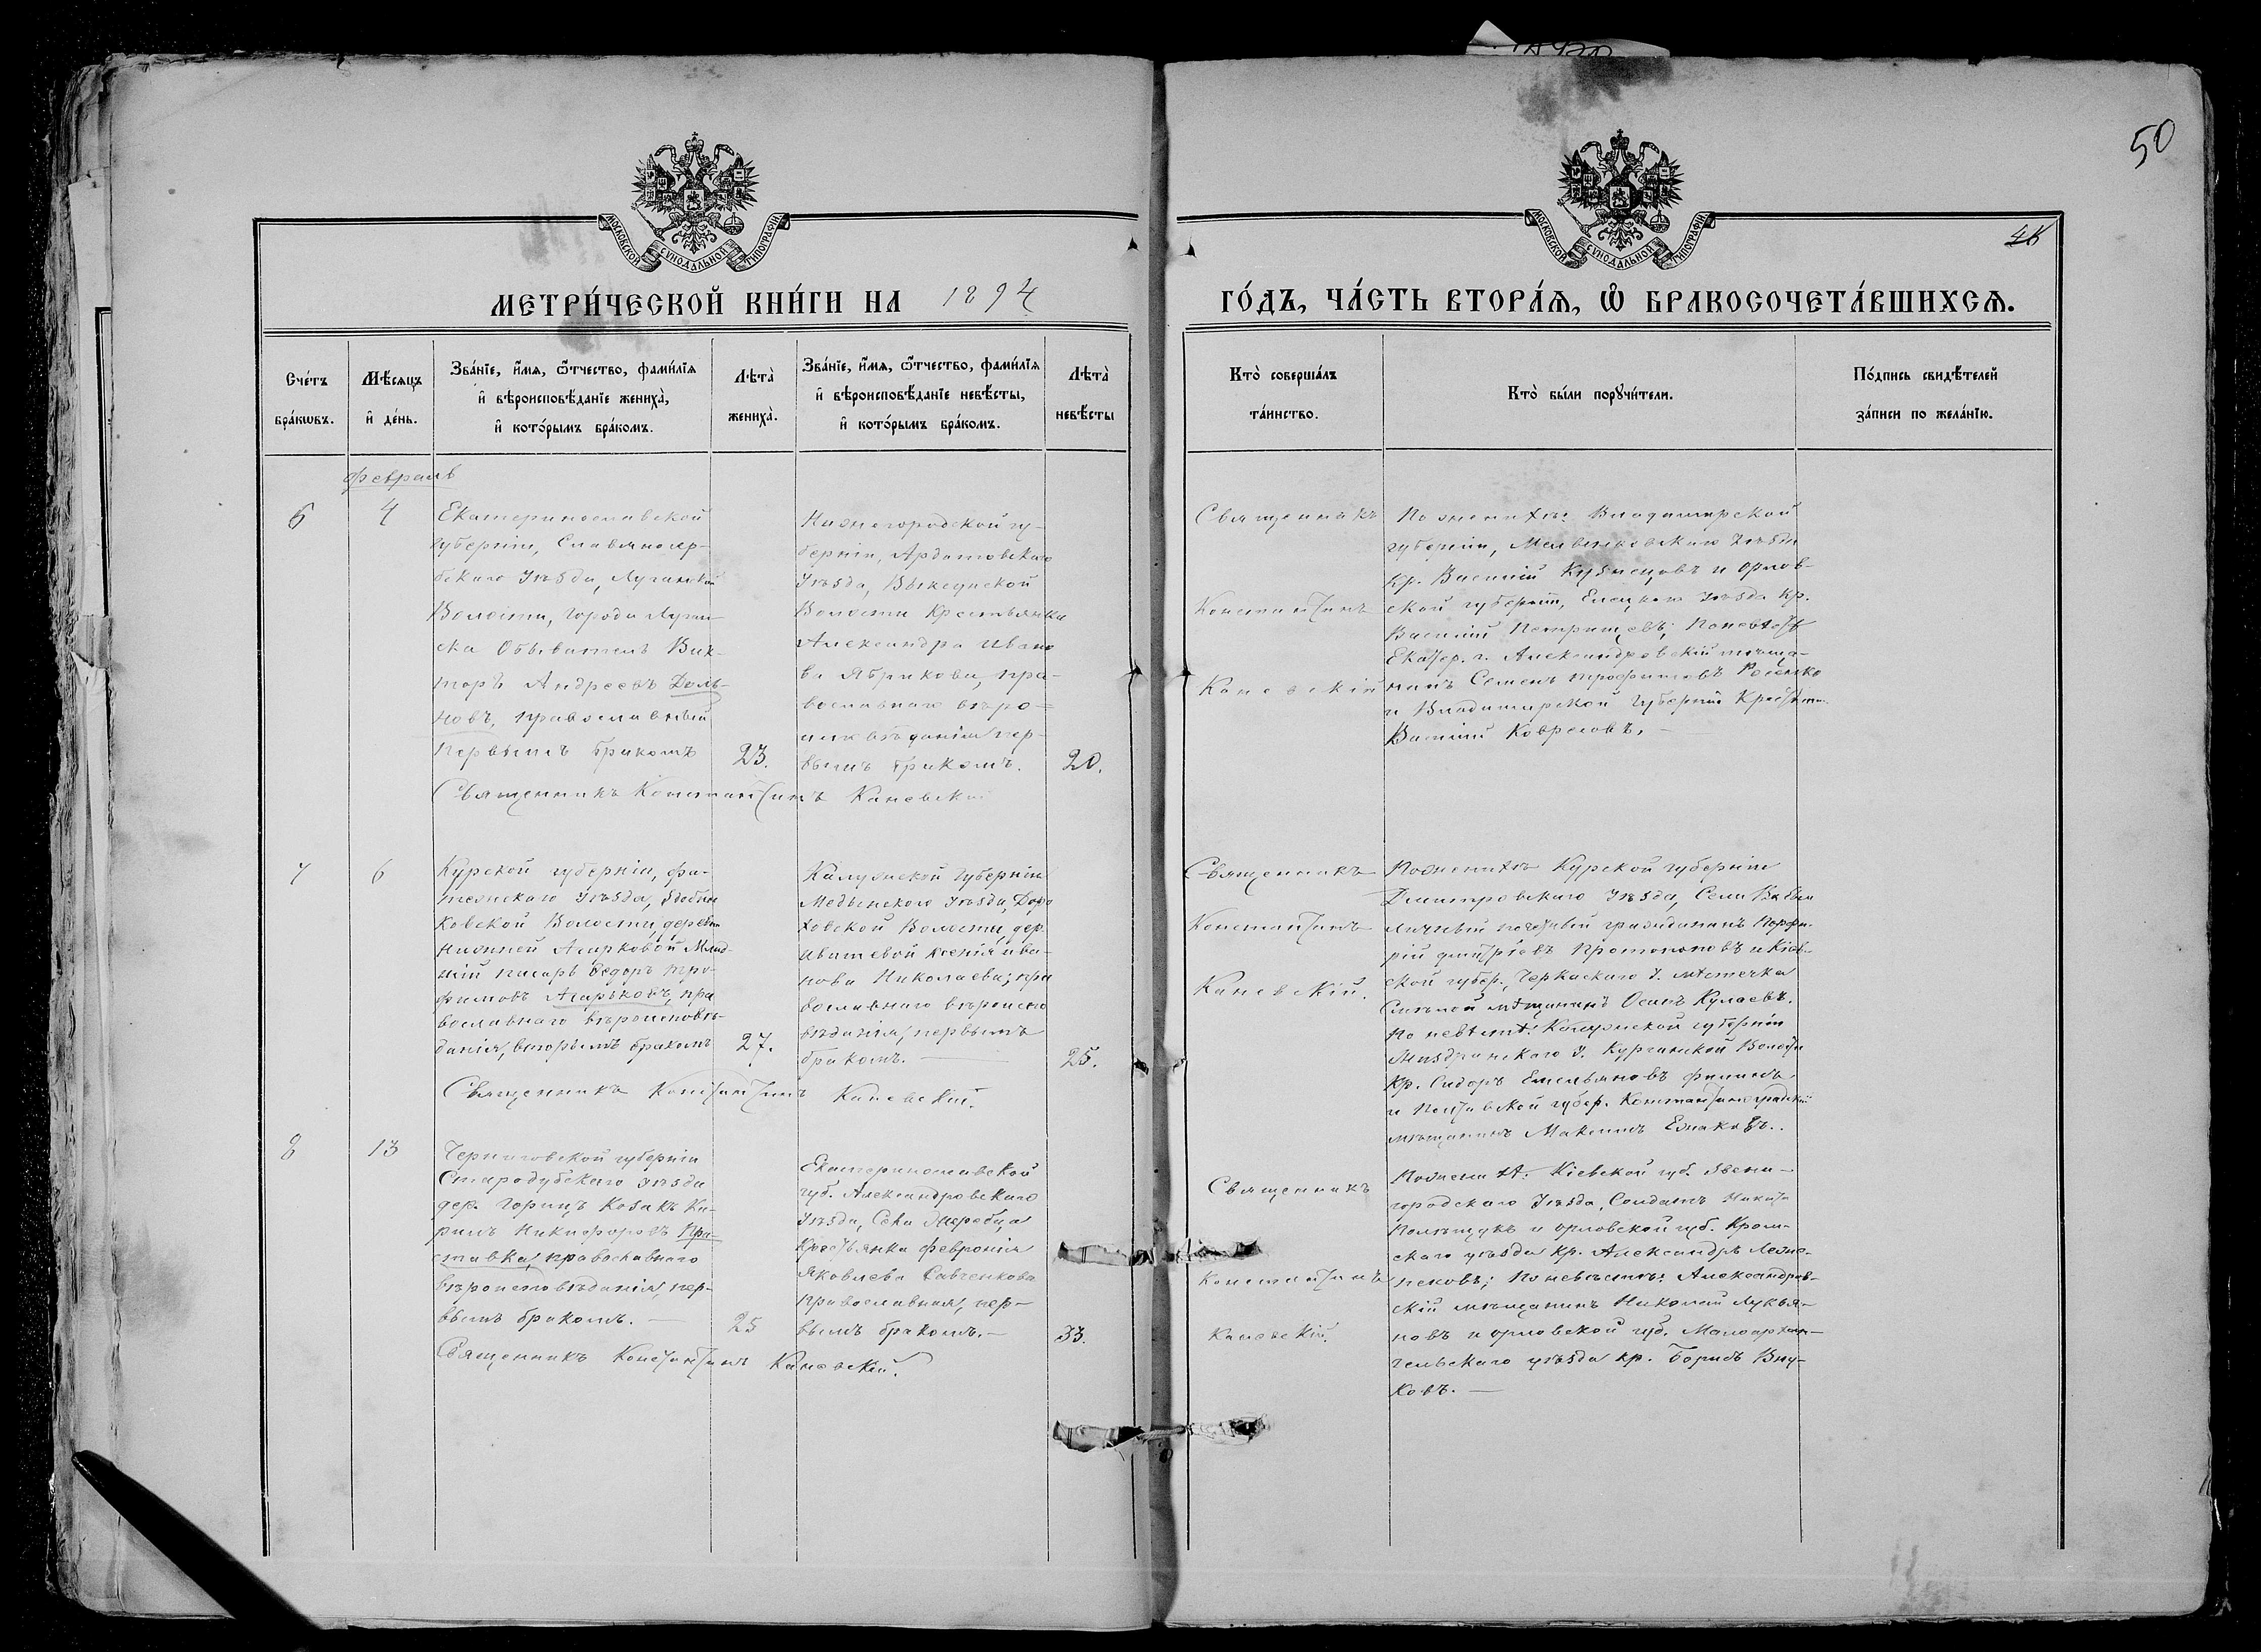 50
46
МОСКОВСКОЙ СѴНОДАЛЬНОЙ ТИПОГРАФІИ
МОСКОВСКОЙ СѴНОДАЛЬНОЙ ТИПОГРАФІИ
МЕТРИ́ЧЕСКОЙ КНИ́ГИ НА 1894
ГО́ДЪ, ЧА́СТЬ ВТОРА́Я, Ѽ БРАКОСОЧЕТА́ВШИХСѦ.
Сче́тъ бра́кѡвъ.
Мѣ́сѧцъ и҆ де́нь.
Зва́нїе, и҆́мѧ, ѻ҆́тчество, фами́лїѧ и҆ вѣроисповѣ́данїе жениха̀, и҆ кото́рымъ бра́комъ.
Лѣта̀ жениха̀.
Зва́нїе, и҆́мѧ, ѻ҆́тчество, фами́лїѧ и҆ вѣроисповѣ́данїе невѣ́сты, и҆ кото́рымъ бра́комъ.
Лѣта̀ невѣ́сты
Кто̀ соверша́лъ та́инство.
Кто̀ бы́ли порꙋчи́тели.
По́дпись свидѣ́телей за́писи по жела́нїю.
Февраль
6
4
Екатеринославской
губерніи, Славяносер-
бскаго Уѣзда, Луганской
Волости, города Луган-
ска Обыватель Вик-
торъ Андреевъ Доль-
новъ, православный
первымъ бракомъ
23.
Нижегородской гу-
берніи, Ардатовскаго
Уѣзда, Выксунской
Волости Крестьянка
Александра Ивано
ва Ябрикова, пра-
вославнаго вѣро=
исповѣданія пер-
вымъ бракомъ.
20.
Священникъ Константинъ Каневскій
Священникъ
Константинъ
Каневскій
По женихѣ: Владимирской
губерніи, Меленковскаго Уѣзда
Кр. Василій Кузнецовъ и Орлов-
ской губерніи, Елецкаго Уѣзда Кр.
Василій Петрищевъ; По невѣстѣ
Екатер. г. Александровскій мѣща-
нинъ Семенъ Трофимовъ
и Владимирской Губерніи Крестьян.
Василій Ковреловъ. –
7
6
Курской губерніи, Фа-
тежскаго Уѣзда,
ковской Волости, деревни
Нижней Агарковой Млад-
шій писарь Федоръ Тро-
фимовъ Агарковъ, пра
вославнаго вѣроисповѣ-
данія, вторымъ бракомъ
27.
Калужской Губерніи
Медынскаго Уѣзда,
ховской Волости, дер.
Ивашевой Ксенія Ива-
нова Николаева; пра
вославнаго вѣроиспо
вѣданія, первымъ
бракомъ. –
25.
Священникъ Константинъ Каневскій.
Священникъ
Константинъ
Каневскій.
По женихѣ Курской губерніи
Дмитровскаго Уѣзда, Села
личный почетный гражданинъ Порфи-
рій Дмитріевъ Протопоповъ и Кіев-
ской губер., Черкаскаго У. мѣстечка
Смѣлой мѣщанинъ Осипъ Кулаевъ.
По невѣстѣ: Калужской губерніи
Жиздринскаго У. Волости
Кр. Сидоръ Емельяновъ Филинъ,
и Полтавской губер. Константиноградскій
мѣщанинъ Максимъ Ермаковъ.
8
13
Черниговской губерніи
Стародубскаго уѣзда
дер. Горицъ Козакъ Ки-
рилъ Никифоровъ При-
ставка, православнаго
вѣроисповѣданія, пер-
вымъ бракомъ. –
25
Екатеринославской
губ. Александровскаго
Уѣзда, Села Жеребца
Крестьянка Февронія
Яковлева Савченкова
православная, пер-
вымъ бракомъ. –
33.
Священникъ Константинъ Каневскій.
Священникъ
Константинъ
Каневскій.
По женихѣ: Кіевской губ. Звени-
городскаго Уѣзда, Солдатъ Никита
Полищукъ и Орловской губ. Кром-
скаго уѣзда кр. Александръ
По невѣстѣ: Александров-
скій мѣщанинъ Николай Лукья-
новъ и Орловской губ. Малоархан-
гельскаго уѣзда кр. Борисъ Вну-
ковъ. –